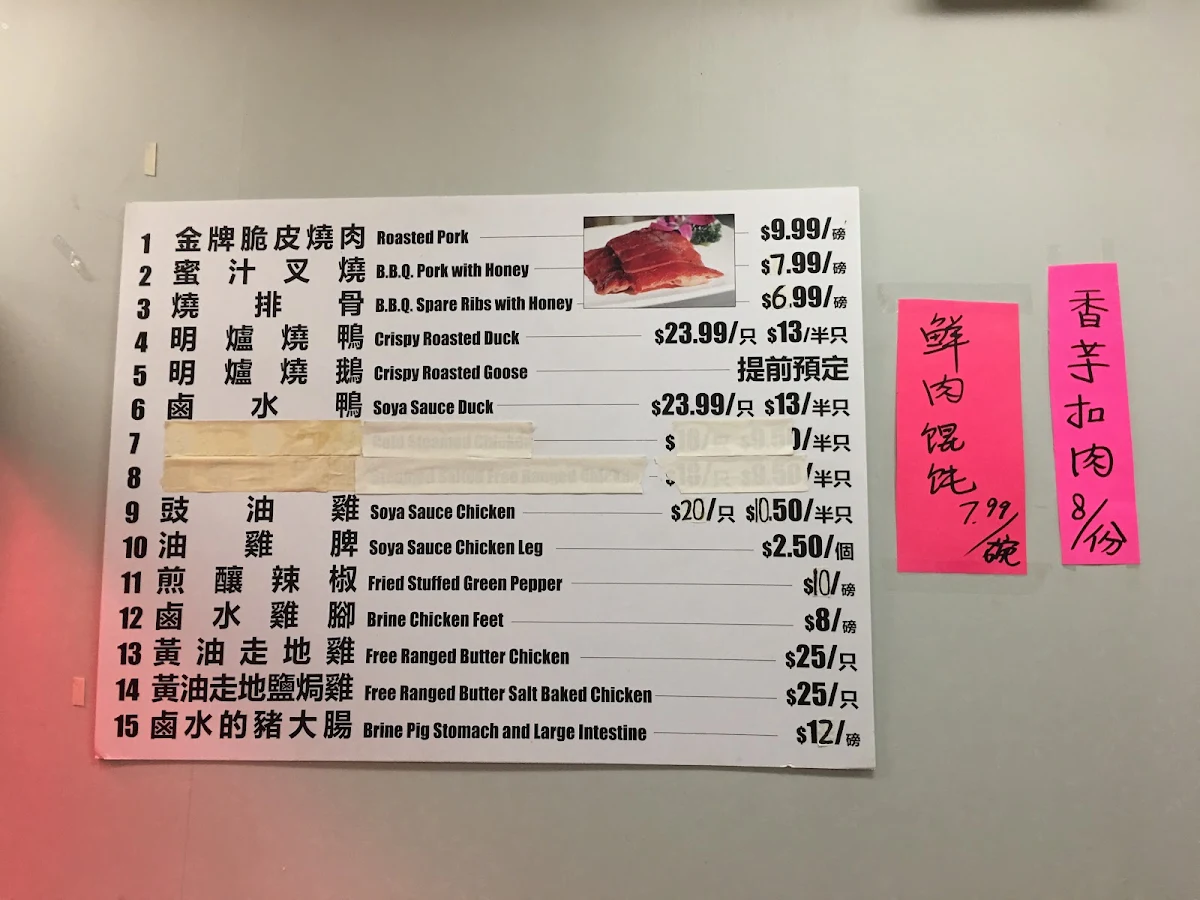 1 金牌脆皮燒肉 Roasted Pork $9.99/磅
2 蜜汁叉燒 B.B.Q. Pork with Honey $7.99/磅
3 燒排骨 B.B.Q. Spare Ribs with Honey $6.99/磅
4 明爐燒鴨 Crispy Roasted Duck $23.99/只 $13/半只
5 明爐燒鵝 Crispy Roasted Goose 提前預定
6 鹵水鴨 Soya Sauce Duck $23.99/只 $13/半只
7 $ 0/半只
8 /半只
9 豉油雞 Soya Sauce Chicken $20/只 $10.50/半只
10 油雞脾 Soya Sauce Chicken Leg $2.50/個
11 煎釀辣椒 Fried Stuffed Green Pepper $10/磅
12 鹵水雞腳 Brine Chicken Feet $8/磅
13 黃油走地雞 Free Ranged Butter Chicken $25/只
14 黃油走地鹽焗雞 Free Ranged Butter Salt Baked Chicken $25/只
15 鹵水的豬大腸 Brine Pig Stomach and Large Intestine $12/磅
鲜肉馄饨
7.99/碗
香芋扣肉
8/份